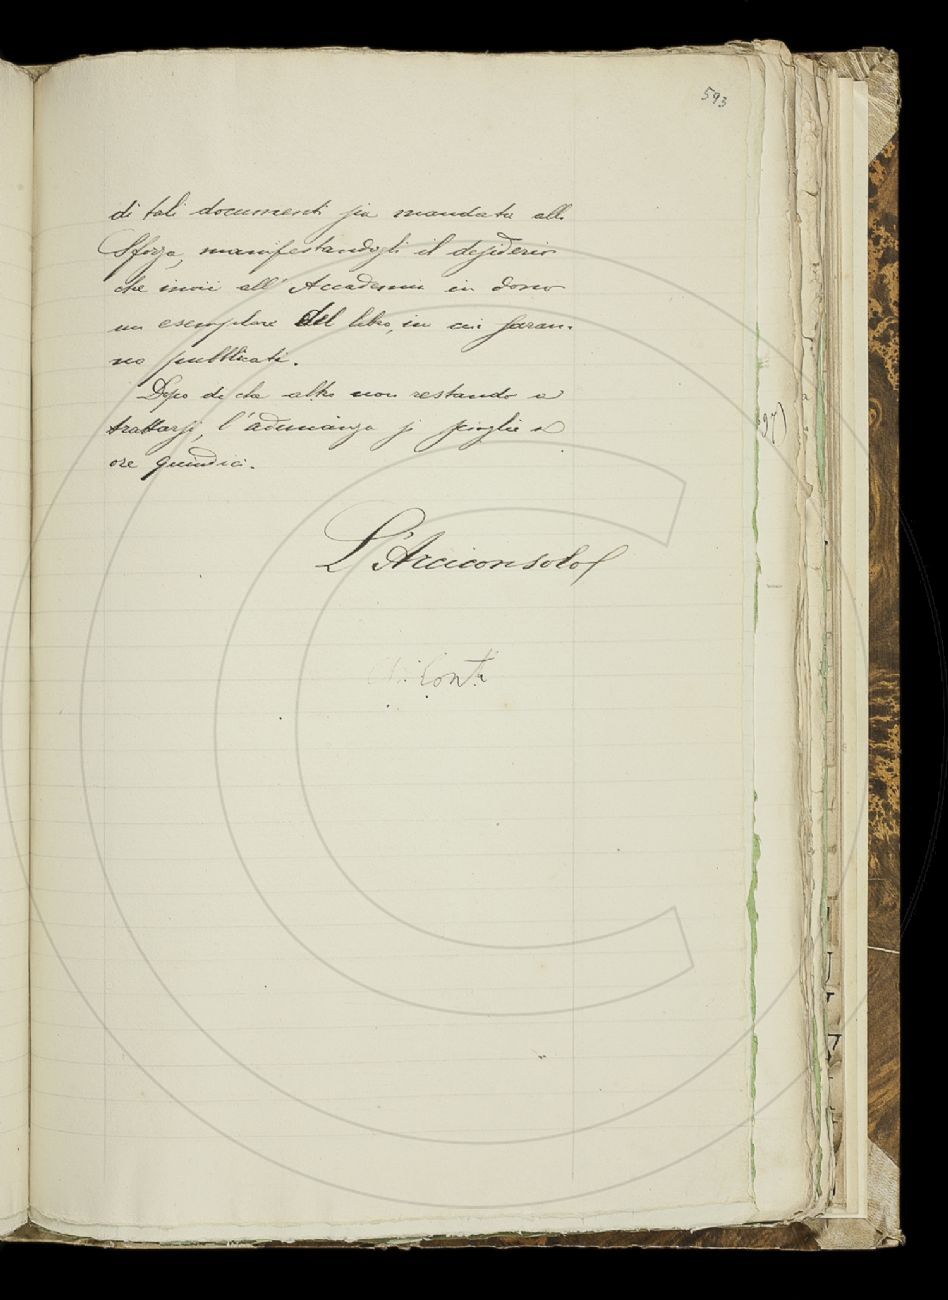 593
di tali documenti sia mandata allo
Sforza, manifestandogli il desiderio
che invii all'Accademia in dono
un esemplare del libro, in cui saran-
no pubblicati.
Dopo di che altro non restando a
trattarsi, l'adunanza si scioglie a
ore quindici.
L'Arciconsolo
Conti